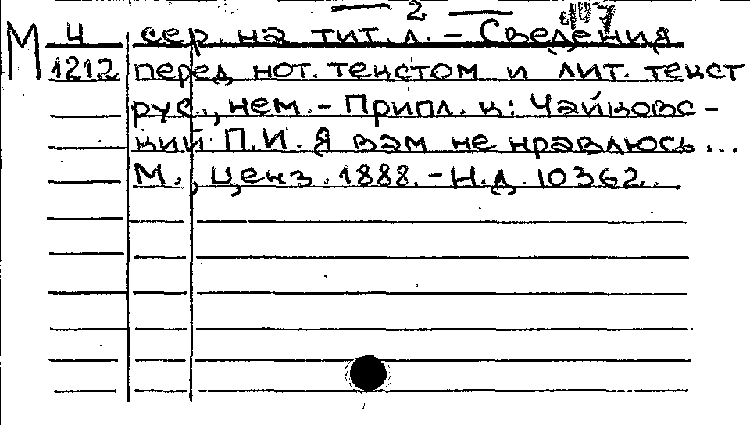 — 2 —
М Ч сер. на тит. л. - Сведения
1212 перед нот. текстом и лит. текст
рус., нем. - Припл. к: Чайковс-
кий П.И. Я вам не нравлюсь...
М., ценз. 1888. - Н.д. 10362.